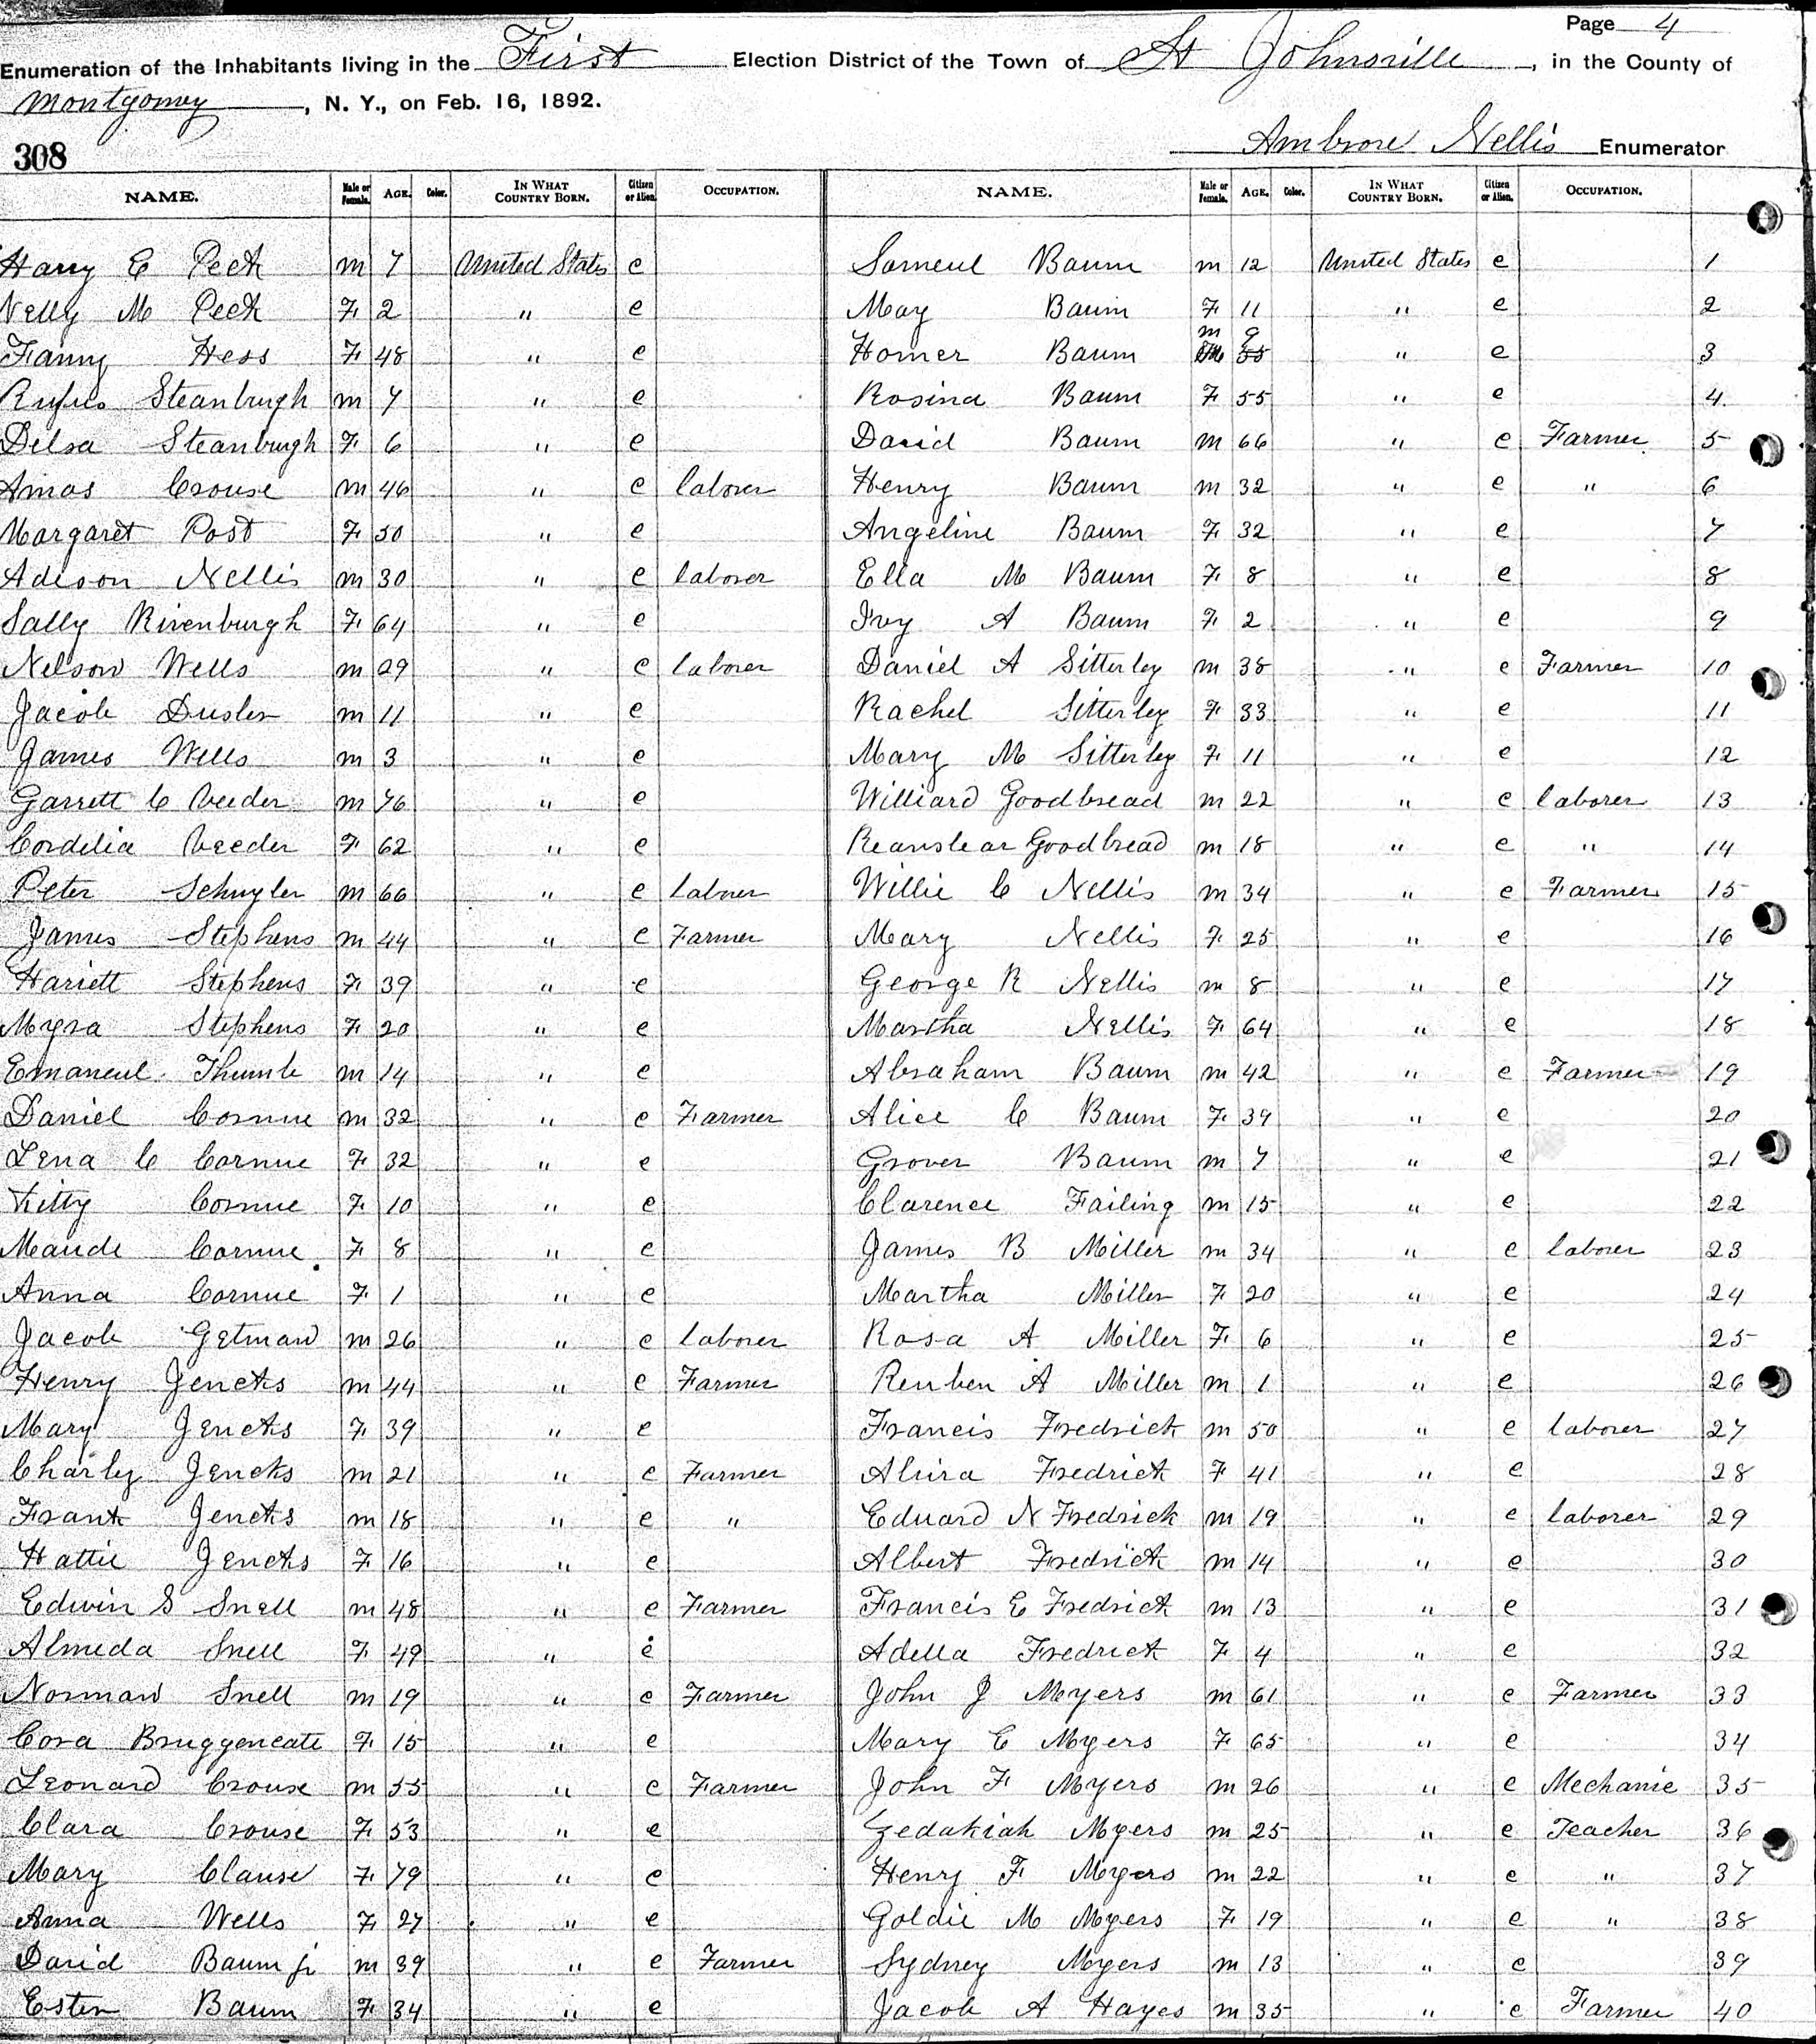 Page 4
Enumeration of the Inhabitants living in the First Election District of the Town of St Johnsville, in the County of
Montgomery, N. Y., on Feb. 16, 1892.
308
Ambrose Nellis Enumerator
NAME. Male or Female. AGE. Color. IN WHAT COUNTRY BORN. Citizen or Alien. OCCUPATION. NAME. Male or Female. AGE. Color. IN WHAT COUNTRY BORN. Citizen or Alien. OCCUPATION.
Harry E Peck m 7 United States c Sameul Baum m 12 United States c 1
Nelly M Peck F 2 " c May Baum F 11 " c 2
Fanny Hess F 48 " c Homer Baum m 9 " c 3
Rufus Steanburgh m 7 " c Rosina Baum F 55 " c 4
Delsa Steanburgh F 6 " c David Baum m 66 " c Farmer 5
Amos Crouse m 46 " c laborer Henry Baum m 32 " c " 6
Margaret Post F 50 " c Angeline Baum F 32 " c 7
Adison Nellis m 30 " c laborer Ella M Baum F 8 " c 8
Sally Rivenburgh F 64 " c Ivy A Baum F 2 " c 9
Nelson Wells m 29 " c laborer Daniel A Sitterley m 38 " c Farmer 10
Jacob Dusler m 11 " c Rachel Sitterley F 33 " c 11
James Wells m 3 " c Mary M Sitterley F 11 " c 12
Garrett C Veeder m 76 " c Williard Goodbread m 22 " c laborer 13
Cordelia Veeder F 62 " c Reanslear Goodbread m 18 " c " 14
Peter Schuyler m 66 " c laborer Willie C Nellis m 34 " c Farmer 15
James Stephens m 44 " c Farmer Mary Nellis F 25 " c 16
Hariett Stephens F 39 " c George R Nellis m 8 " c 17
Myra Stephens F 20 " c Martha Nellis F 64 " c 18
Emaneul Thumb m 14 " c Abraham Baum m 42 " c Farmer 19
Daniel Cornue m 32 " c Farmer Alice C Baum F 39 " c 20
Lena C Cornue F 32 " c Grover Baum m 7 " c 21
Kitty Cornue F 10 " c Clarence Failing m 15 " c 22
Maude Cornue F 8 " c James B Miller m 34 " c laborer 23
Anna Cornue F 1 " c Martha Miller F 20 " c 24
Jacob Getman m 26 " c laborer Rosa A Miller F 6 " c 25
Henry Jencks m 44 " c Farmer Reuben A Miller m 1 " c 26
Mary Jencks F 39 " c Francis Fredrick m 50 " c laborer 27
Charley Jencks m 21 " c Farmer Alvira Fredrick F 41 " c 28
Frank Jencks m 18 " c " Eduard N Fredrick m 19 " c laborer 29
Hattie Jencks F 16 " c Albert Fredrick m 14 " c 30
Edwin S Snell m 48 " c Farmer Francis E Fredrick m 13 " c 31
Almeda Snell F 49 " c Adella Fredrick F 4 " c 32
Norman Snell m 19 " c Farmer John J Myers m 61 " c Farmer 33
Cora Bruggencate F 15 " c Mary C Myers F 65 " c 34
Leonard Crouse m 55 " c Farmer John F Myers m 26 " c Mechanic 35
Clara Crouse F 53 " c Zedakiah Myers m 25 " c Teacher 36
Mary Clause F 79 " c Henry F Myers m 22 " c " 37
Anna Wells F 27 " c Goldie M Myers F 19 " c " 38
David Baum jr m 39 " c Farmer Sydney Myers m 13 " c 39
Ester Baum F 34 " c Jacob A Hayes m 35 " c Farmer 40